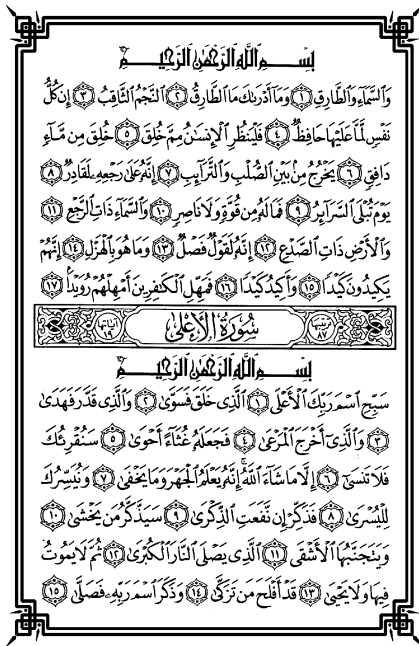 بِسْمِ اللَّهِ الرَّحْمَٰنِ الرَّحِيمِ
وَالسَّمَاءِ وَالطَّارِقِ ١ وَمَا أَدْرَىٰكَ مَا الطَّارِقُ ٢ النَّجْمُ الثَّاقِبُ ٣ إِن كُلُّ
نَفْسٍ لَّمَّا عَلَيْهَا حَافِظٌ ٤ فَلْيَنظُرِ الْإِنسَٰنُ مِمَّ خُلِقَ ٥ خُلِقَ مِن مَّاءٍ
دَافِقٍ ٦ يَخْرُجُ مِن بَيْنِ الصُّلْبِ وَالتَّرَائِبِ ٧ إِنَّهُ عَلَىٰ رَجْعِهِ لَقَادِرٌ ٨
يَوْمَ تُبْلَى السَّرَائِرُ ٩ فَمَا لَهُ مِن قُوَّةٍ وَلَا نَاصِرٍ ١٠ وَالسَّمَاءِ ذَاتِ الرَّجْعِ ١١
وَالْأَرْضِ ذَاتِ الصَّدْعِ ١٢ إِنَّهُ لَقَوْلٌ فَصْلٌ ١٣ وَمَا هُوَ بِالْهَزْلِ ١٤ إِنَّهُمْ
يَكِيدُونَ كَيْدًا ١٥ وَأَكِيدُ كَيْدًا ١٦ فَمَهِّلِ الْكَٰفِرِينَ أَمْهِلْهُمْ رُوَيْدًا ١٧
ترتيبها ٨٧ سُورَةُ الْأَعْلَىٰ آياتها ١٩
بِسْمِ اللَّهِ الرَّحْمَٰنِ الرَّحِيمِ
سَبِّحِ اسْمَ رَبِّكَ الْأَعْلَى ١ الَّذِي خَلَقَ فَسَوَّىٰ ٢ وَالَّذِي قَدَّرَ فَهَدَىٰ
٣ وَالَّذِي أَخْرَجَ الْمَرْعَىٰ ٤ فَجَعَلَهُ غُثَاءً أَحْوَىٰ ٥ سَنُقْرِئُكَ
فَلَا تَنسَىٰ ٦ إِلَّا مَا شَاءَ اللَّهُ إِنَّهُ يَعْلَمُ الْجَهْرَ وَمَا يَخْفَىٰ ٧ وَنُيَسِّرُكَ
لِلْيُسْرَىٰ ٨ فَذَكِّرْ إِن نَّفَعَتِ الذِّكْرَىٰ ٩ سَيَذَّكَّرُ مَن يَخْشَىٰ ١٠
وَيَتَجَنَّبُهَا الْأَشْقَى ١١ الَّذِي يَصْلَى النَّارَ الْكُبْرَىٰ ١٢ ثُمَّ لَا يَمُوتُ
فِيهَا وَلَا يَحْيَىٰ ١٣ قَدْ أَفْلَحَ مَن تَزَكَّىٰ ١٤ وَذَكَرَ اسْمَ رَبِّهِ فَصَلَّىٰ ١٥